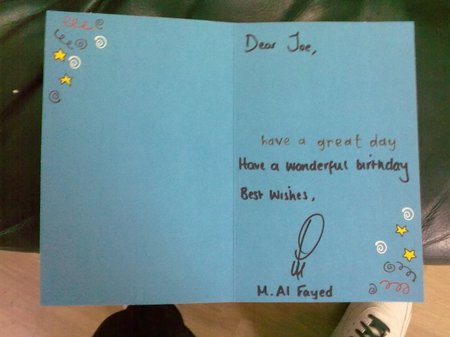 Dear Joe,
have a great day
Have a wonderful birthday
Best Wishes,
M. Al Fayed